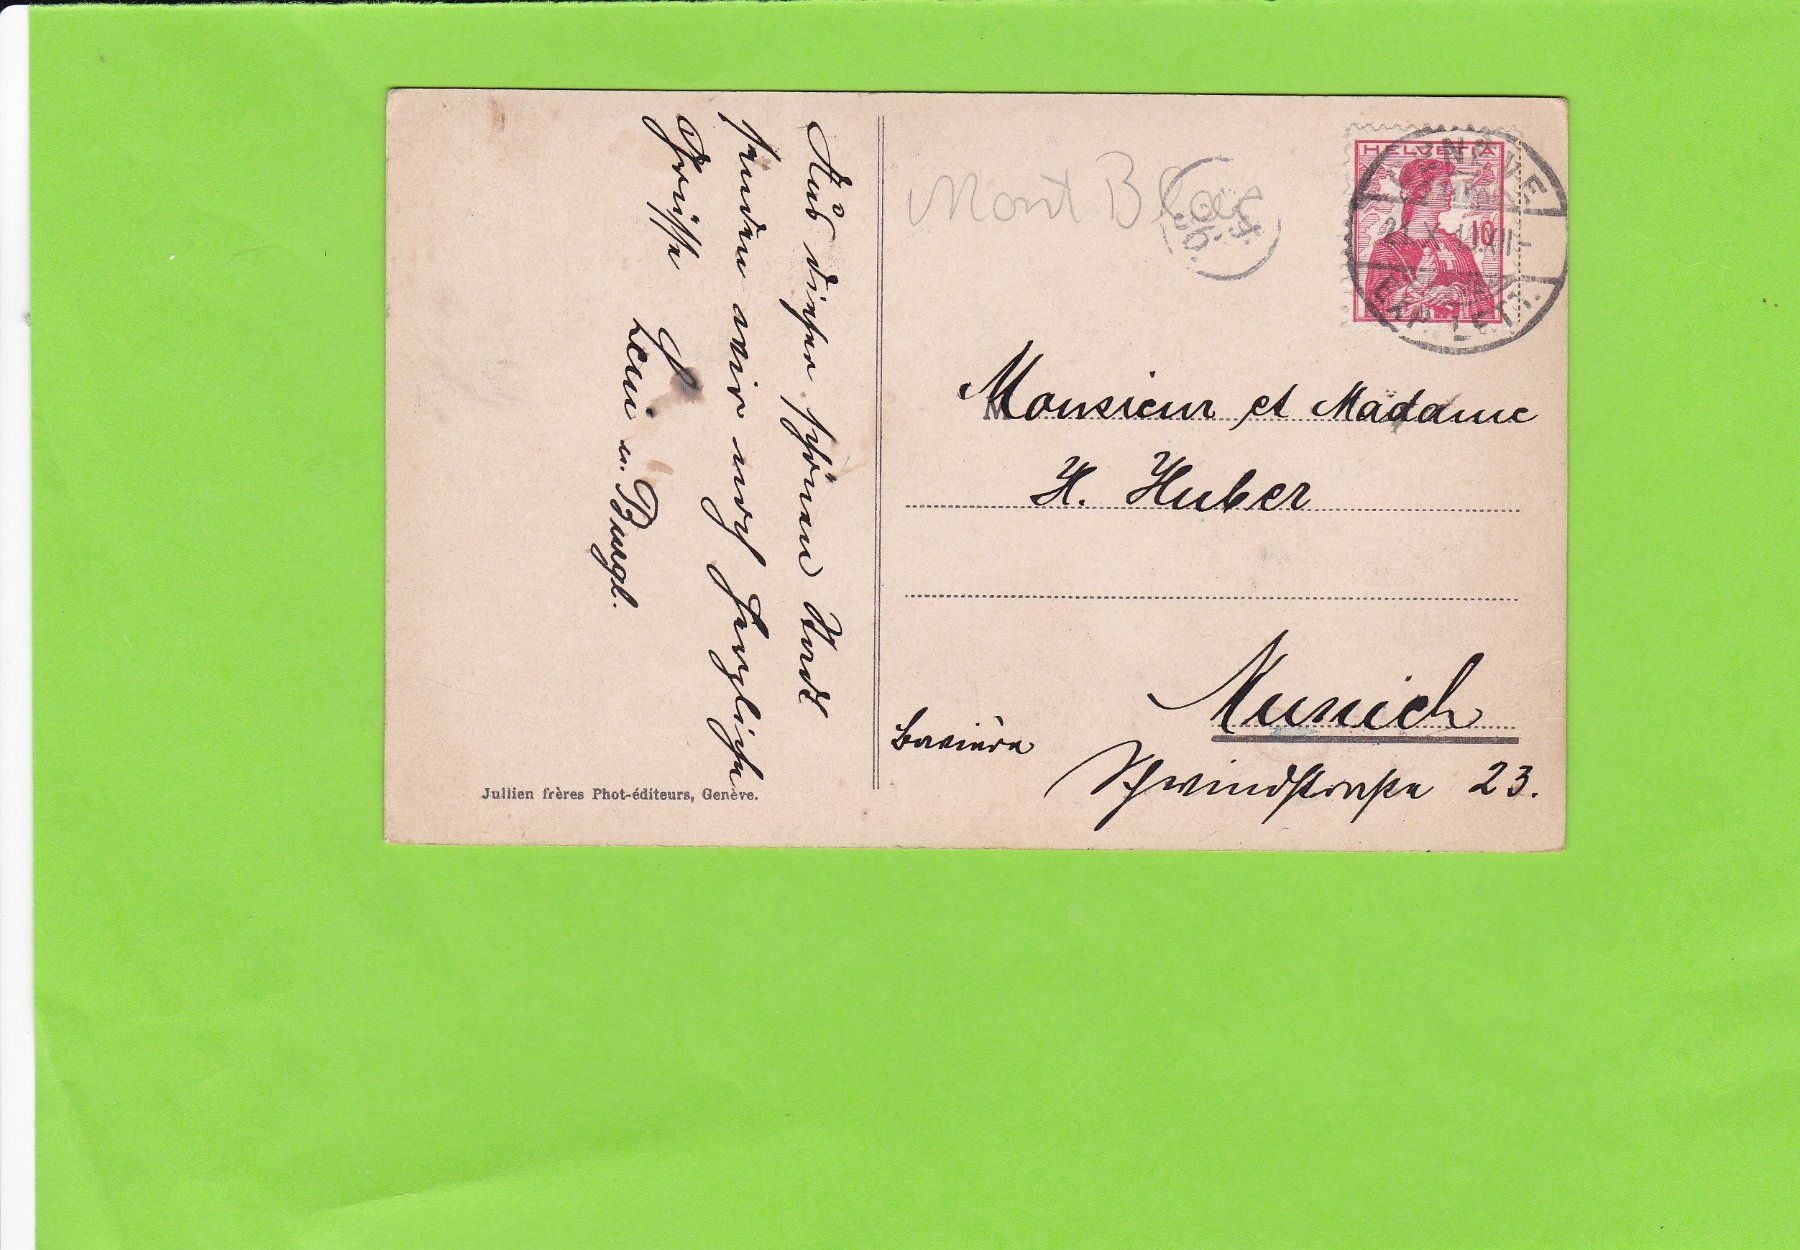 Aus dieser schönen Stadt
senden wir noch herzliche
Grüsse
Leni u.
Julllien frères Phot-éditeurs, Genève.
Mont Blanc
HELVETIA
10
GENÈVE
EXP. LETTR.
Monsieur et Madame
H. Huber
Munich
Bavière
Schwindstraße 23.